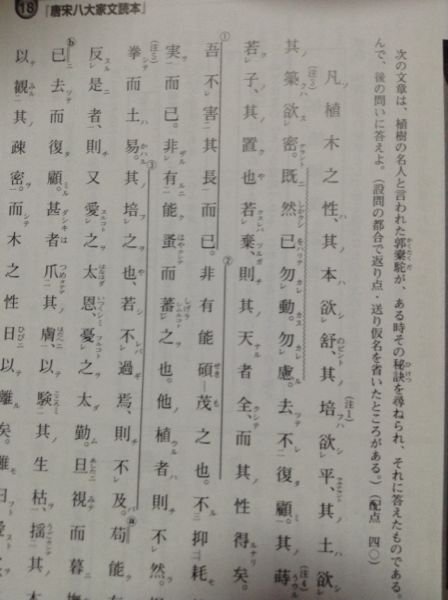 18 『唐宋八大家文読本』
次の文章は、植樹の名人と言われた郭橐駝が、ある時その秘訣を尋ねられ、それに答えたものである。
んで、後の問いに答えよ。(設問の都合で返り点・送り仮名を省いたところがある。)(配点 四〇)
凡植木之性、其本欲舒、其培欲平、其土欲
其築欲密。既然已勿動勿慮。去不復顧。其蒔
若子、其置也若棄、則其天者全、而其性得矣。
吾不害其長而已。非有能碩茂之也。不抑耗
実而已。非有能蚤而蕃之也。他植者則不然。
拳而土易。其培之也、若不過焉、則不及。苟能有
反是者、則又愛之太恩、憂之太勤。旦視而暮撫
已去而復顧。甚者爪其膚以験其生枯、揺其本
以観其疎密。而木之性日以離矣。雖曰